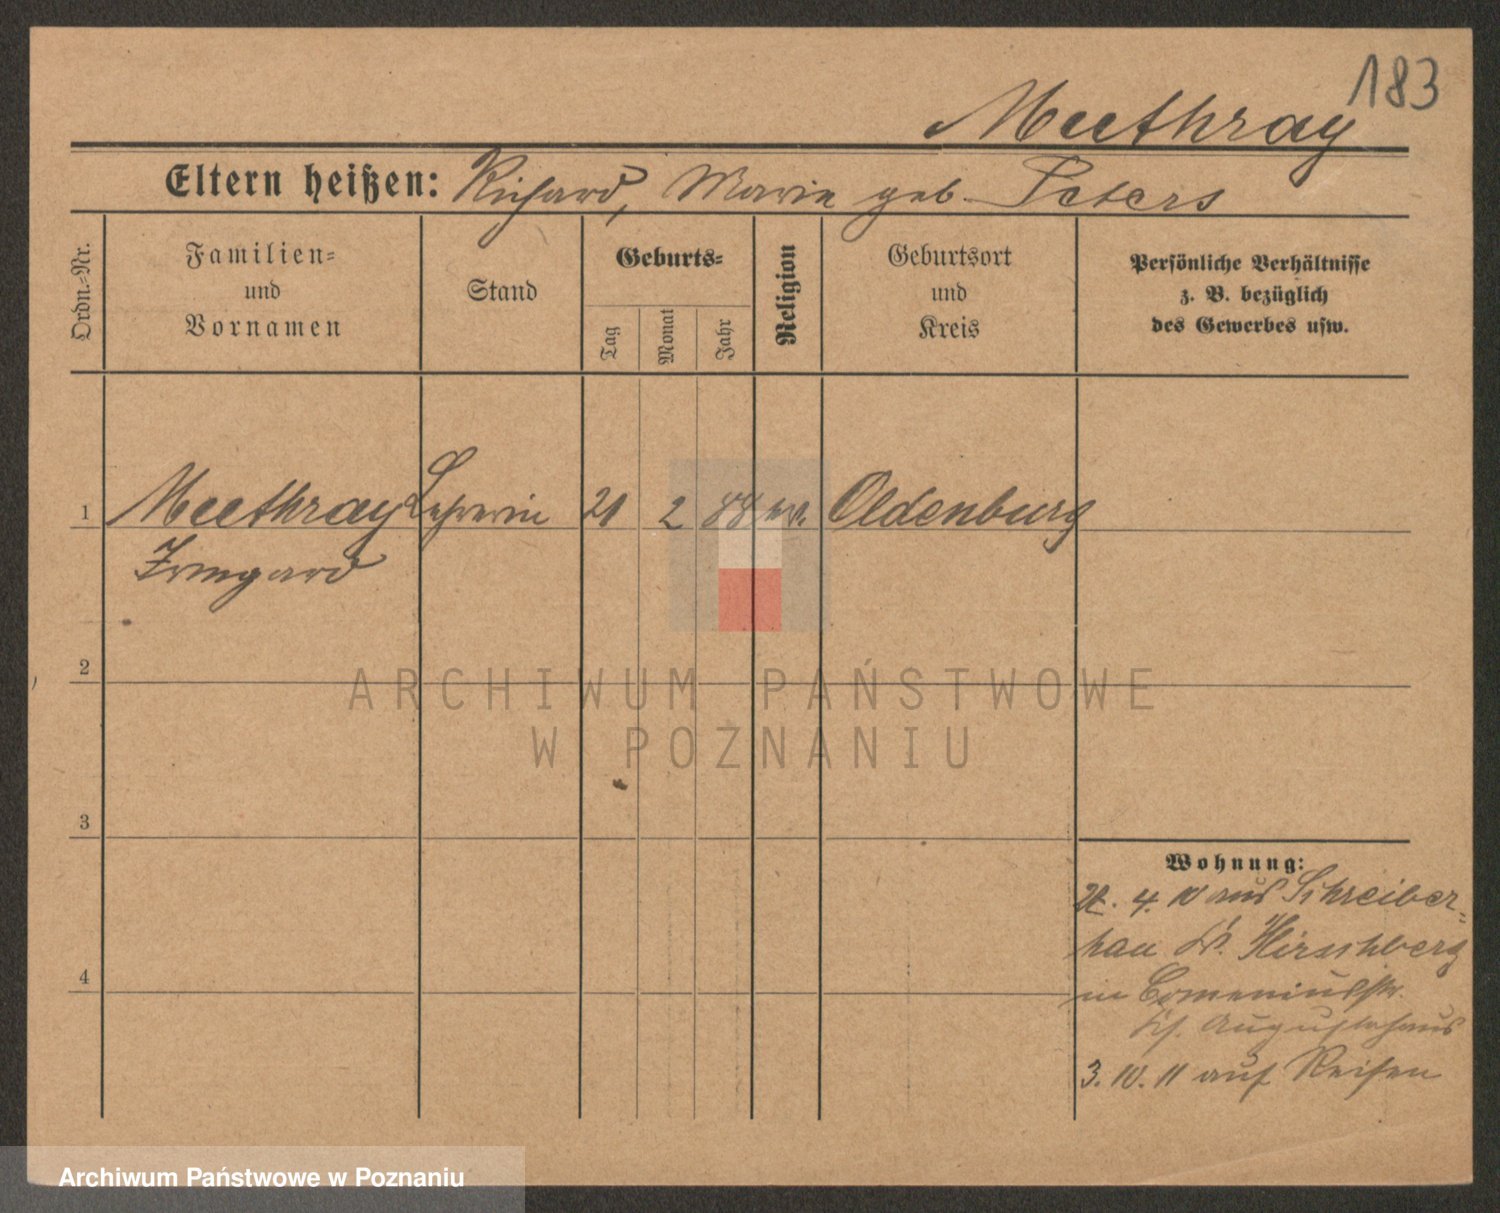 183
Meethray
Eltern heißen: Richard, Marie geb. Peters
Ordn.-Nr.
Familien-
und
Vornamen
Stand
Geburts-
Tag
Monat
Jahr
Religion
Geburtsort
und
Kreis
Persönliche Verhältnisse
z. B. bezüglich
des Gewerbes usw.
1 Meethray Lehrerin 21 2 88 ev. Oldenburg
Irmgard
2
ARCHIWUM PAŃSTWOWE
W POZNANIU
3
Wohnung:
4. 10 aus Schreiber-
hau Kr. Hirschberg
4
in Comeniusstr.
Augustahaus
3. 10. 11 auf Reisen
Archiwum Państwowe w Poznaniu